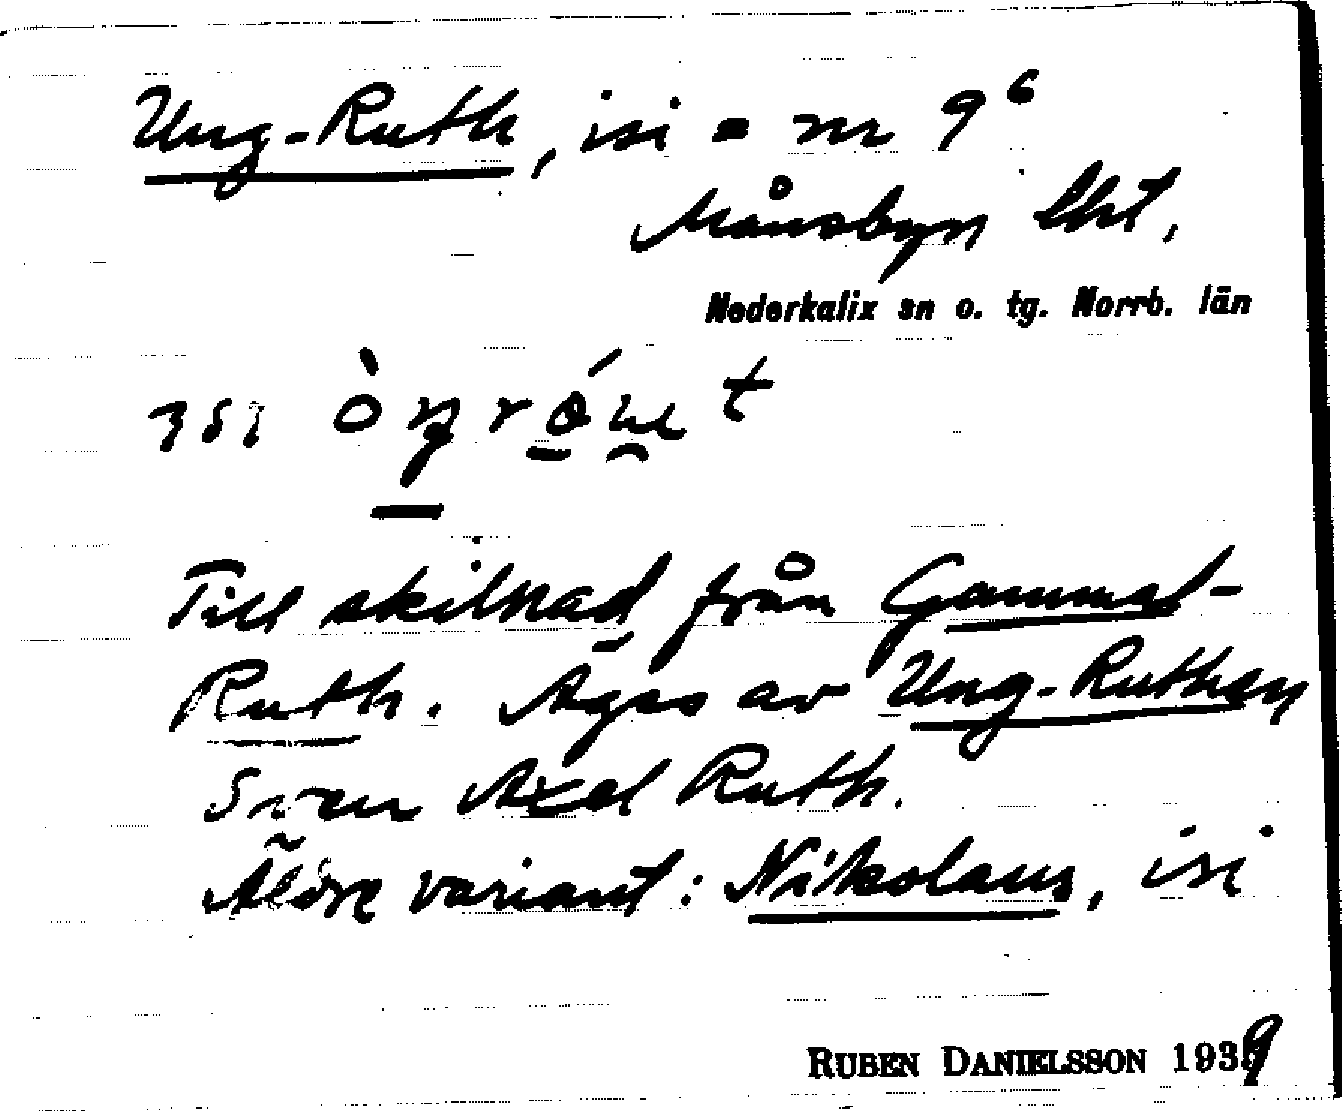 Ung-Ruth, isi = nr 9⁶
Månsbyn Lht,
Nederkalix sn o. tg. Norrb. län
ısı
Till skilnad från Gammel-
Ruth. Äges av Ung-Ruthen
Sven Axel Ruth.
Äldre variant: Nikolaus, isi
RUBEN DANIELSSON 1939